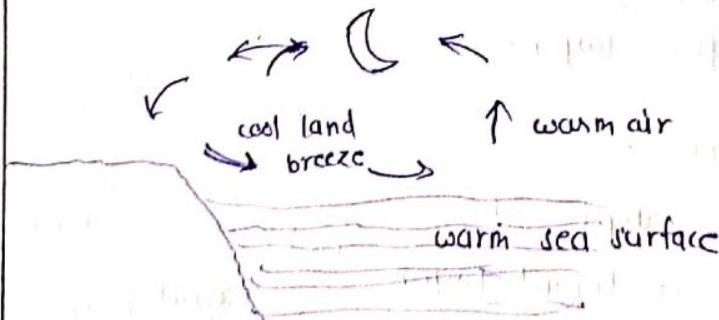 cool land
breeze
warm air
warm sea surface